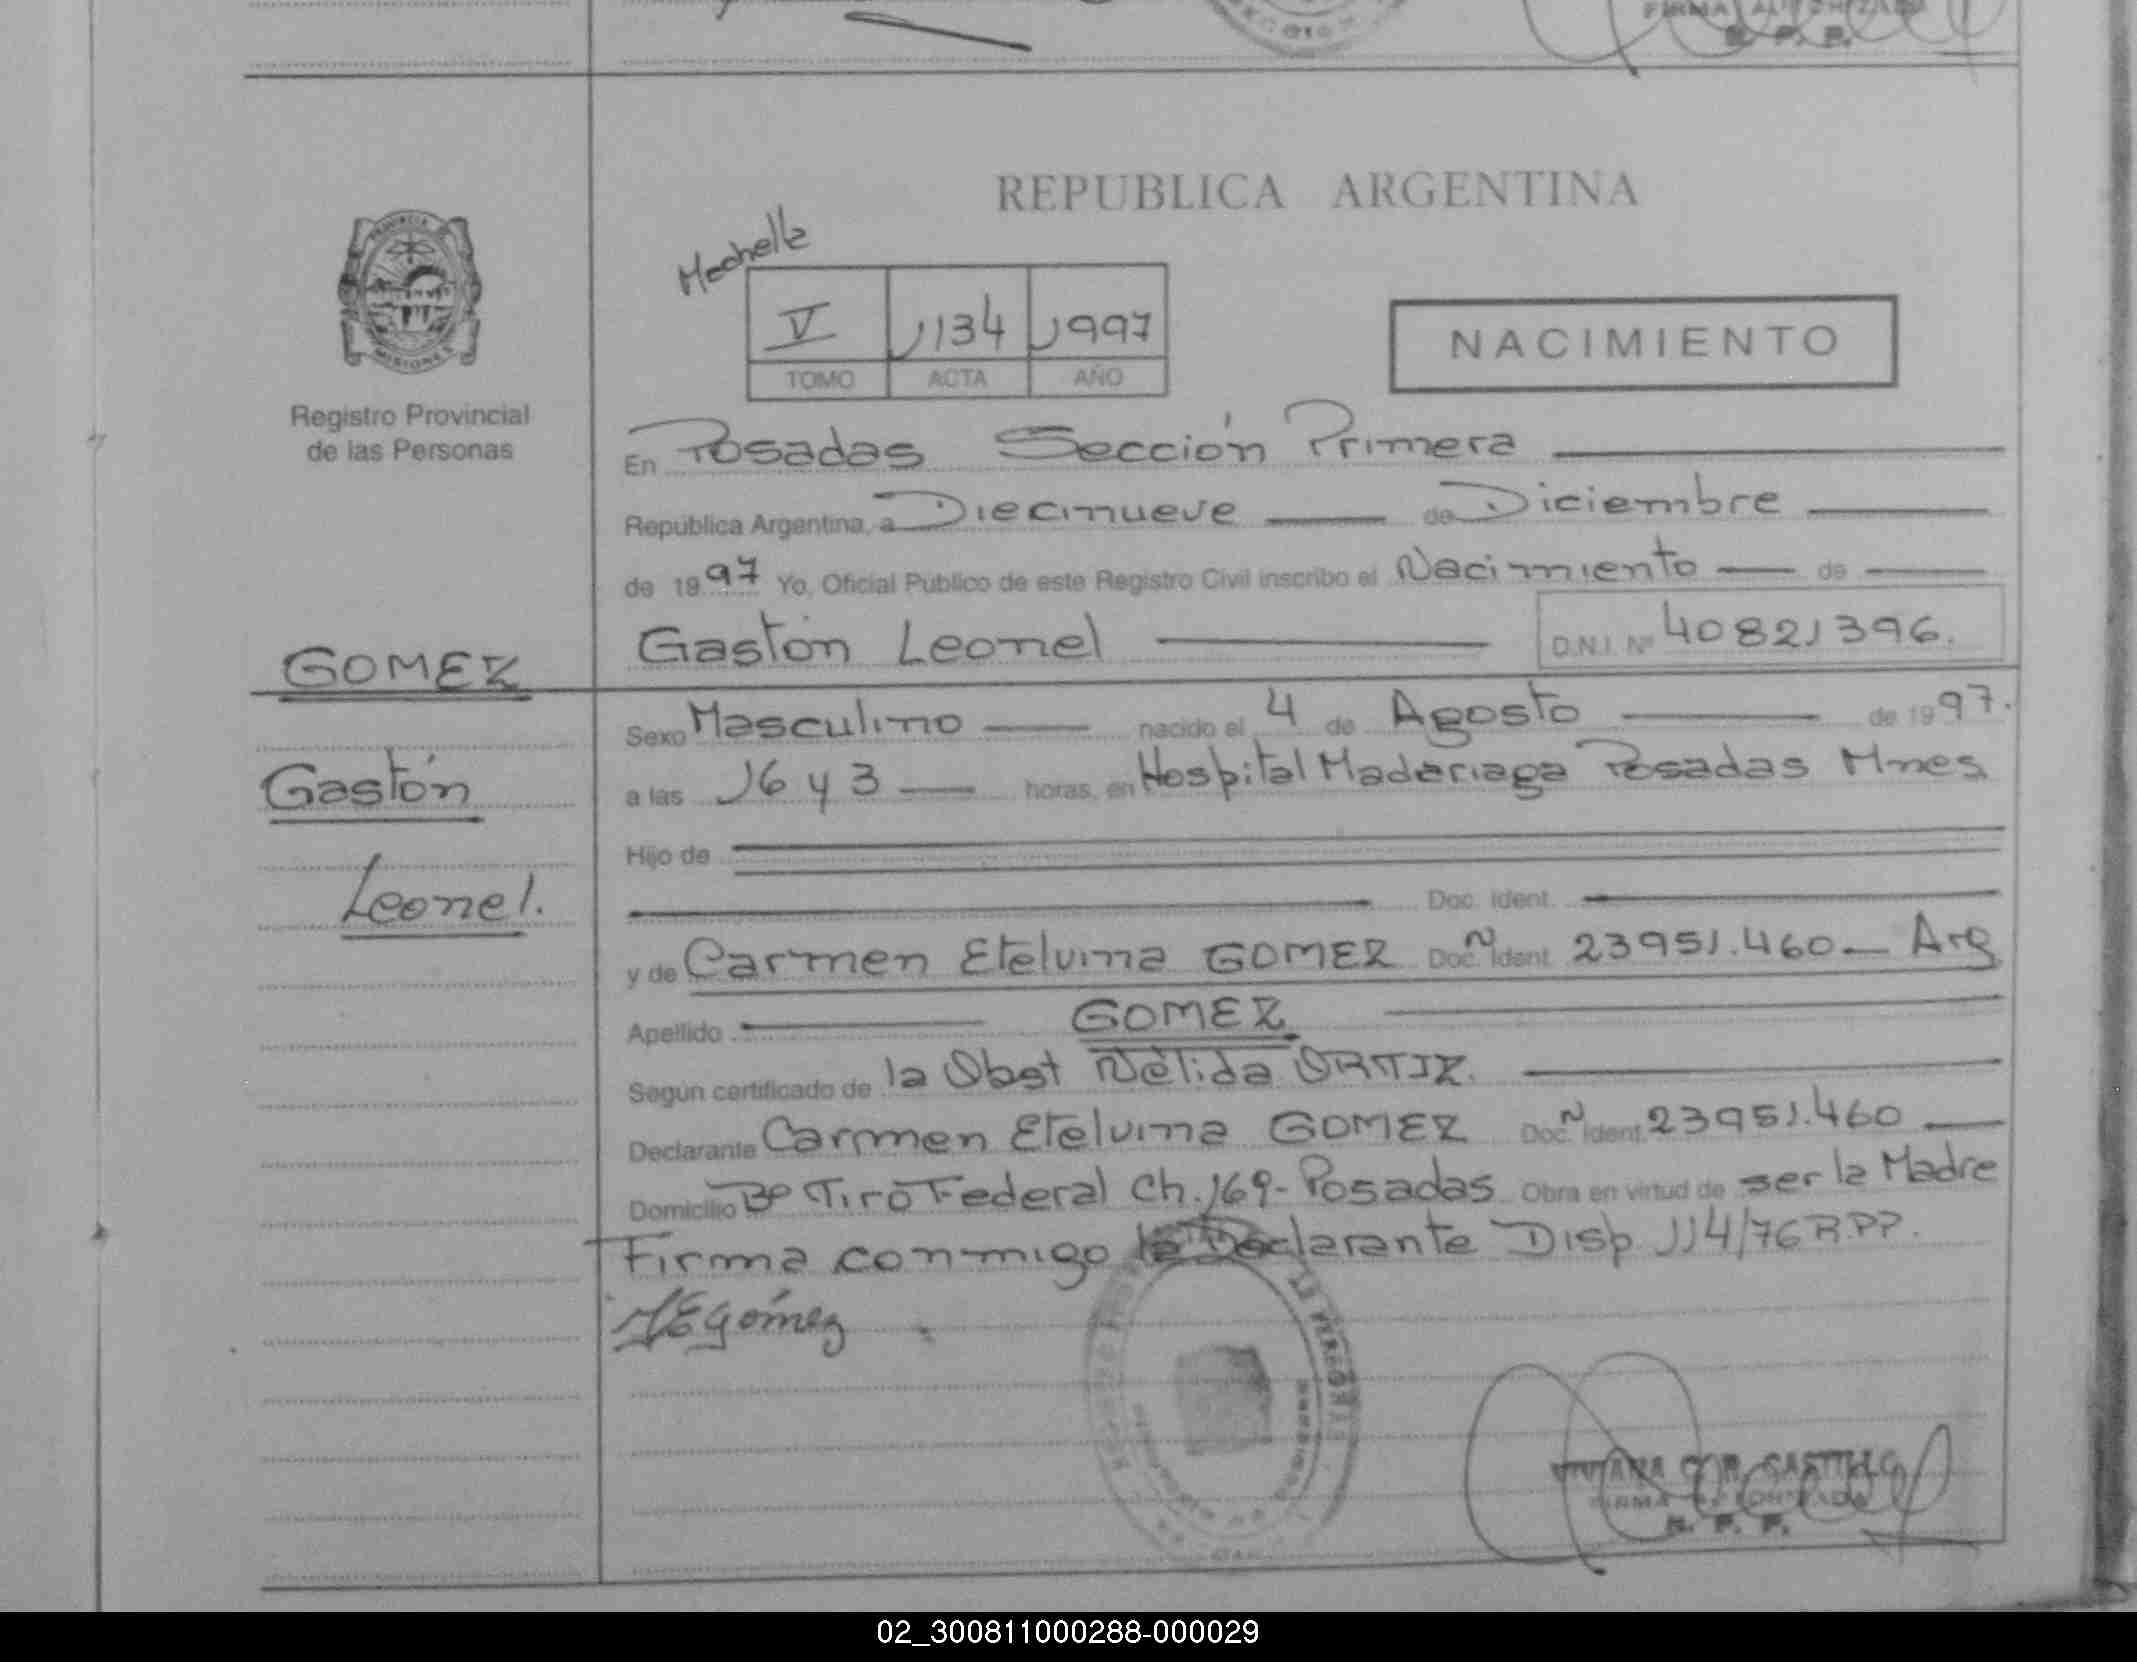 FIRMA AUTORIZADA
R. P. P.
REPUBLICA ARGENTINA
PROVINCIA DE
MISIONES
V 1134 1997
TOMO ACTA AÑO
NACIMIENTO
Registro Provincial
de las Personas
En Posadas Sección Primera
República Argentina, a Diecinueve de Diciembre
de 1997 Yo, Oficial Público de este Registro Civil inscribo el Nacimiento de
GOMEZ
Gastón Leonel D.N.I. Nº 40821396.
Sexo Masculino nacido el 4 de Agosto de 1997.
Gastón
a las 16 y 3 horas, en Hospital Madariaga Posadas Mnes
Hijo de
Leonel.
Doc. Ident.
y de Carmen Etelvina GOMEZ Doc. Ident. 23951.460 Arg
Apellido GOMEZ
Según certificado de la Obst Nélida ORTIZ.
Declarante Carmen Etelvina GOMEZ Doc. Ident. 23951.460
Domicilio Bº Tiro Federal Ch. 169 - Posadas Obra en virtud de ser la Madre
Firma conmigo la Declarante Disp 114/76 R.P.P.
Gómez
CASTILLO
FIRMA AUTORIZADA
R. P. P.
02_300811000288-000029